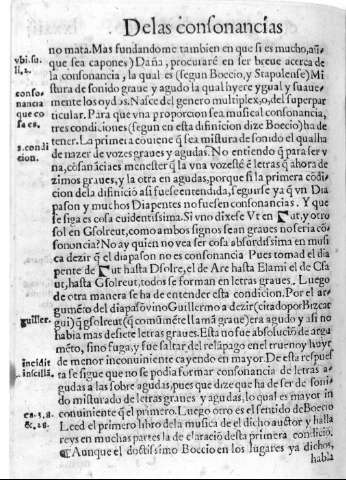 De las consonancias
no mata. Mas fundandome tambien en que si es mucho, aũ-
que sea capones) Daña, procurarè en ser breue acerca de
la consonancia, la qual es (segun Boecio, y Stapulense) Mi
stura de sonido graue y agudo la qual hyere ygual y suaue-
mente los oydos. Nasce del genero multiplex, o, del superpar
ticular. Para que vna proporcion sea musical consonancia,
tres condiciones (segun en esta difinicion dize Boecio) ha de
tener. La primera couiene q̃ sea mistura de sonido el qual ha
de nazer de vozes graues y agudas. No entiendo q̃ para ser v
na, cõsonãcia es menester q̃ la vna voz estè ẽ letras q̃ ahora de
zimos graues, y la otra en agudas, porque si la primera cõdi-
cion de la difiniciõ asi fuese entendida, seguirse ya q̃ vn Dia
pason y muchos Diapentes no fuesen consonancias. Y que
se siga es cosa euidentissima. Si vno dixese Vt en Γut, y otro
sol en Gsolreut, como ambos signos sean graues no seria cõ-
sonancia? No ay quien no vea ser cosa absurdissima en musi
ca dezir q̃ el diapason no es consonancia Pues tomad el dia
pente de Γut hasta Dsolre, el de Are hasta Elami el de Cfa
ut, hasta Gsolreut, todos se forman en letras graues. Luego
de otra manera se ha de entender esta condicion. Por el ar-
gumẽto del diapasõ vino Guillermo a dezir (citado por Bizcar
gui) q̃ gsolreut (q̃ comũmẽte llamã graue) era agudo y asi no
habia mas de siete letras graues. Esta no fue absoluciõ de argu
mẽto, sino fuga, y fue saltar del relãpago en el truenoy huyr
de menor inconuiniente cayendo en mayor. De esta respues
ta se sigue que no se podia formar consonancia de letras a-
gudas a las sobre agudas, pues que dize que ha de ser de soni-
do misturado de letras graues y agudas, lo qual es mayor in
conuiniente q̃ el primero. Luego otro es el sentido de Boecio
Leed el primero libro de la musica de el dicho auctor y halla
reys en muchas partes la declaraciõ desta primera condiciõ.
¶ Aunque el doctissimo Boecio en los lugares ya dichos,
habla
vbi. su.
li, 2.
conso-
nancia
que co
sa es.
3. condi
cion.
guiller.
incidit
in scillã.
ca. 3. 8.
&. 28.